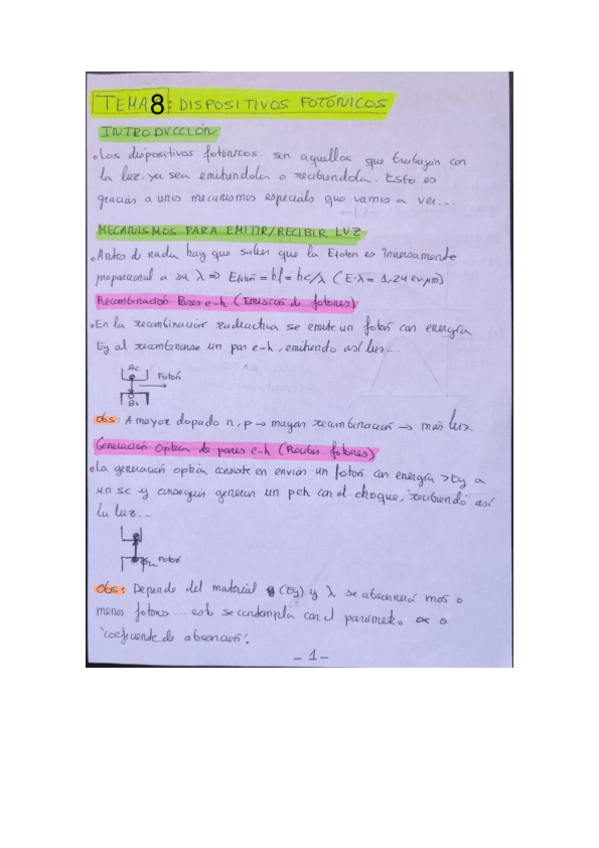 TEMA 8: DISPOSITIVOS FOTÓNICOS
INTRODUCCIÓN
• Los dispositivos fotónicos son aquellos que trabajan con
la luz, ya sea emitiendola o recibiendola. Esto es
gracias a unos mecanismos especiales que vamos a ver...
MECANISMOS PARA EMITIR/RECIBIR LUZ
• Antes de nada hay que saber que la Efoton es inversamente
proporcional a su λ => Efotón = hf = hc/λ (E·λ = 1,24 eV·μm)
Recombinación Pares e-h (Emisión de fotones)
• En la recombinación radiactiva se emite un fotón con energía
Eg al recombinarse un par e-h, emitiendo así luz...
BC
Fotón
BV
Obs: A mayor dopado n, p → mayor recombinación → más luz.
Generación óptica de pares e-h (Recibir fotones)
• La generación óptica consiste en enviar un fotón con energía >Eg a
un SC y conseguir generar un peh con el choque, "recibiendo" así
la luz...
Fotón
Obs: Depende del material (Eg) y λ se absorberá más o
menos fotones... esto se contempla con el parámetro α o
"coeficiente de absorción".
- 1 -